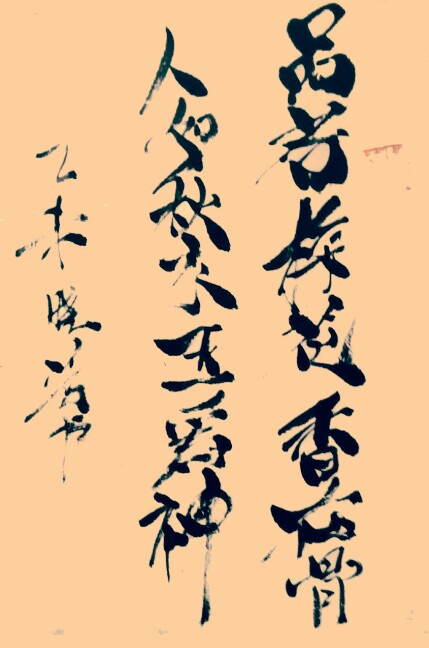 品若梅花香在骨
人如秋水玉為神
乙未